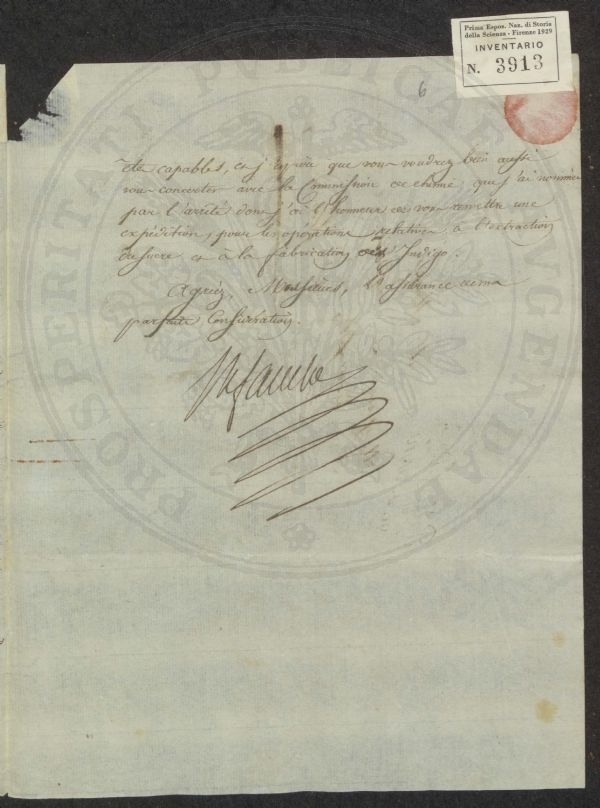 Prima Espos. Naz. di Storia
della Scienza - Firenze 1929
INVENTARIO
N. 3913
6
été capables, et j'espère que vous voudrez bien aussi
vous concerter avec la Commission de chimie, que j'ai nommée
par l'arrêté dont j'ai l'honneur de vous remettre une
expédition, pour les opérations relatives à l'extraction
du sucre et à la fabrication de l'Indigo.
Agréez, Messieurs, l'assurance de ma
parfaite Considération.
PROSPERITATI PUBLICAE AUGENDAE